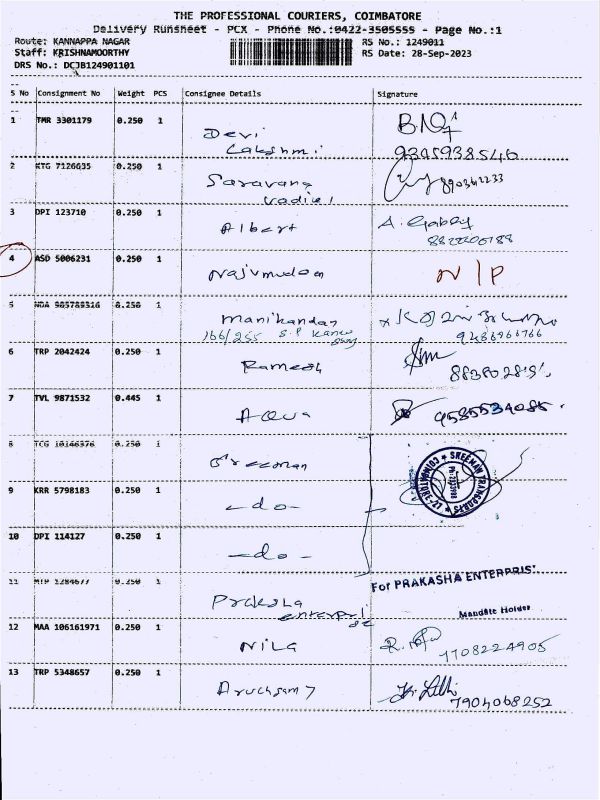 THE PROFESSIONAL COURIERS, COIMBATORE
Delivery Runsheet - PCX - Phone No.:0422-3505555 - Page No.:1
Route: KANNAPPA NAGAR
RS No.: 1249011
Staff: KRISHNAMOORTHY
RS Date: 28-Sep-2023
DRS No.: DCJB124901101
S No Consignment No Weight PCS Consignee Details Signature
1 TMR 3301179 0.250 1 Devi
Lakshmi 9345938546
2 KTG 7126635 0.250 1 Saravana
vadivel
3 DPI 123710 0.250 1 Albert A.
4 ASD 5006231 0.250 1 N/P
5 NDA 985789316 0.250 1 Manikandan
166/255 S.P
6 TRP 2042424 0.250 1 Ramesh
7 TVL 9871532 0.445 1 Aqua 9585534085.
8 TCG 0.250 1 Sreeman
SREEMAN TRANSPORTS
9 KRR 5798183 0.250 1 -do-
10 DPI 114127 0.250 1 -do-
11 MTP 1284677 0.250 1 Praksha
enterprise
For PRAKASHA ENTERPRIS
Mandate Holder
12 MAA 106161971 0.250 1 Nila R.
7708224905
13 TRP 5348657 0.250 1 Aruchsamy
7904068252